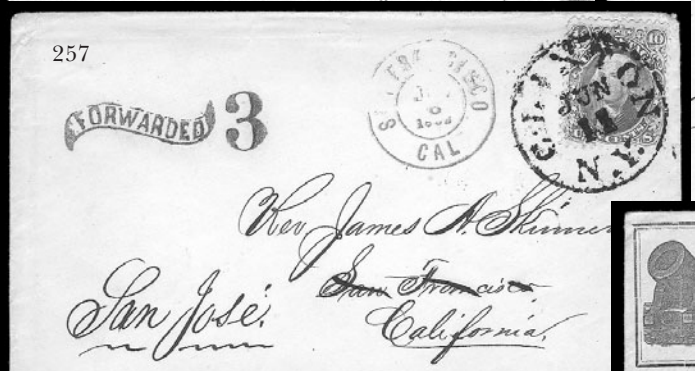 257
FORWARDED 3
SAN FRANCISCO
CAL
CLINTON
JUN
11
N.Y.
10
Rev James A. Skinner
San Francisco
San José.
California.